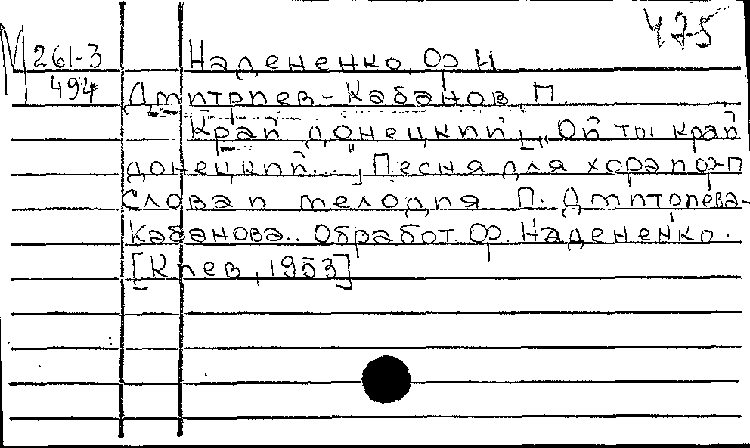 475
М 261-3
494
Надененко, Ф. Н.
Дмитриев-Кабанов, П.
Край донецкий, „Ой ты край
донецкий..." Песня для хора и ф-п
Слова и мелодия П. Дмитриева-
Кабанова.. Обработ. Ф. Надененко.
[Киев, 1953]